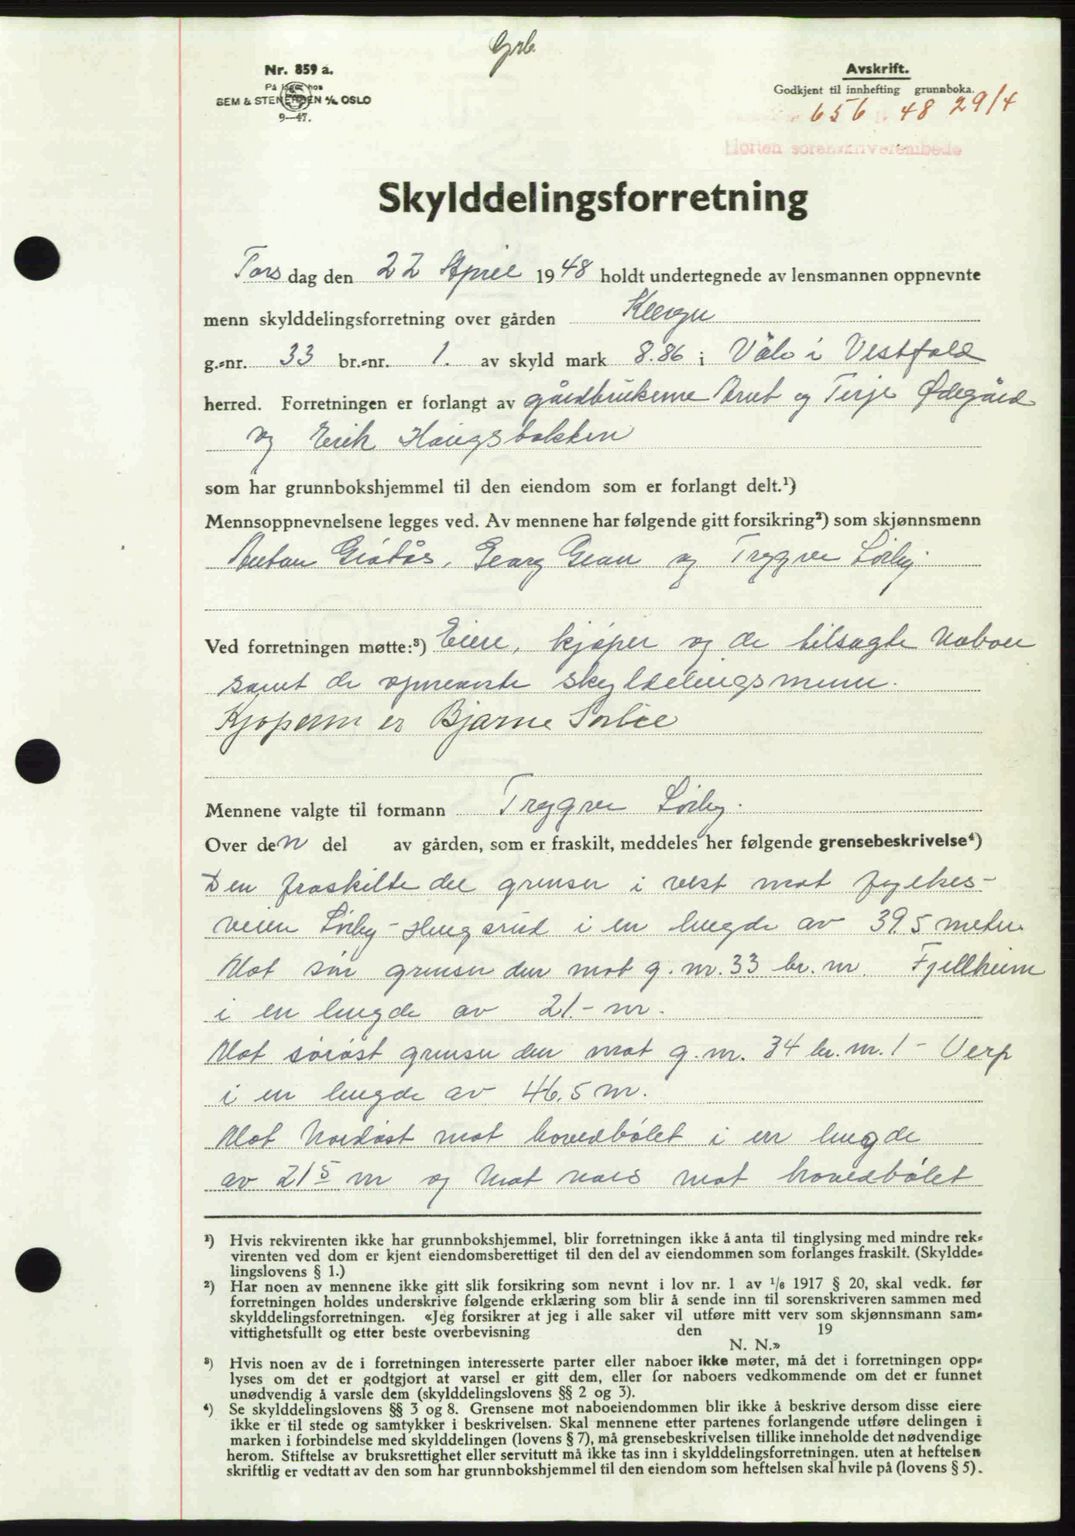 Grb.
Nr. 859 a.
På lager hos
SEM & STENERSEN A/S OSLO
9—47.
Avskrift.
Godkjent til innhefting grunnboka.
656 48 29/4
Horten sorenskriverembede
Skylddelingsforretning
Torsdag den 22 April 1948 holdt undertegnede av lensmannen oppnevnte
menn skylddelingsforretning over gården
g.-nr. 33 br.-nr. 1. av skyld mark 8.86 i Våle i Vestfold
herred. Forretningen er forlangt av gårdbrukerne Knut og Terje Ødegård
og Erik Haugsbakken
som har grunnbokshjemmel til den eiendom som er forlangt delt.¹)
Mennsoppnevnelsene legges ved. Av mennene har følgende gitt forsikring²) som skjønnsmenn
Anton Gråtås, Georg Gran og Trygve Lørby.
Ved forretningen møtte:³) Eiere, kjøper og de tilsagte Naboer
samt de opnevnte skylddelingsmenn.
Kjøperen er Bjarne Sørlie
Mennene valgte til formann Trygve Lørby.
Over den del av gården, som er fraskilt, meddeles her følgende grensebeskrivelse⁴)
Den fraskilte del grenser i vest mot fylkes-
veien Lørby - Haugsrud i en lengde av 39.5 meter.
Mot sør grenser den mot g. nr. 33 br. nr. Fjellheim
i en lengde av 21 - m.
Mot sørøst grenser den mot g. nr. 34 br. nr. 1 - Verp
i en lengde av 46,5 m.
Mot Nordøst mot hovedbølet i en lengde
av 21⁵ m og mot nord mot hovedbølet
¹) Hvis rekvirenten ikke har grunnbokshjemmel, blir forretningen ikke å anta til tinglysing med mindre rek-
virenten ved dom er kjent eiendomsberettiget til den del av eiendommen som forlanges fraskilt. (Skyldde-
lingslovens § 1.)
²) Har noen av mennene ikke gitt slik forsikring som nevnt i lov nr. 1 av 1/6 1917 § 20, skal vedk. før
forretningen holdes underskrive følgende erklæring som blir å sende inn til sorenskriveren sammen med
skylddelingsforretningen. «Jeg forsikrer at jeg i alle saker vil utføre mitt verv som skjønnsmann sam-
vittighetsfullt og etter beste overbevisning den 19
N. N.»
³) Hvis noen av de i forretningen interesserte parter eller naboer ikke møter, må det i forretningen opp-
lyses om det er godtgjort at varsel er gitt dem, eller for naboers vedkommende om det er funnet
unødvendig å varsle dem (skylddelingslovens §§ 2 og 3).
⁴) Se skylddelingslovens §§ 3 og 8. Grensene mot naboeiendommen blir ikke å beskrive dersom disse eiere
ikke er til stede og samtykker i beskrivelsen. Skal mennene etter partenes forlangende utføre delingen i
marken i forbindelse med skylddelingen (lovens § 7), må grensebeskrivelsen tillike inneholde det nødvendige
herom. Stiftelse av bruksrettighet eller servitutt må ikke tas inn i skylddelingsforretningen, uten at heftelsen
skriftlig er vedtatt av den som har grunnbokshjemmel til den eiendom som heftelsen skal hvile på (lovens § 5).